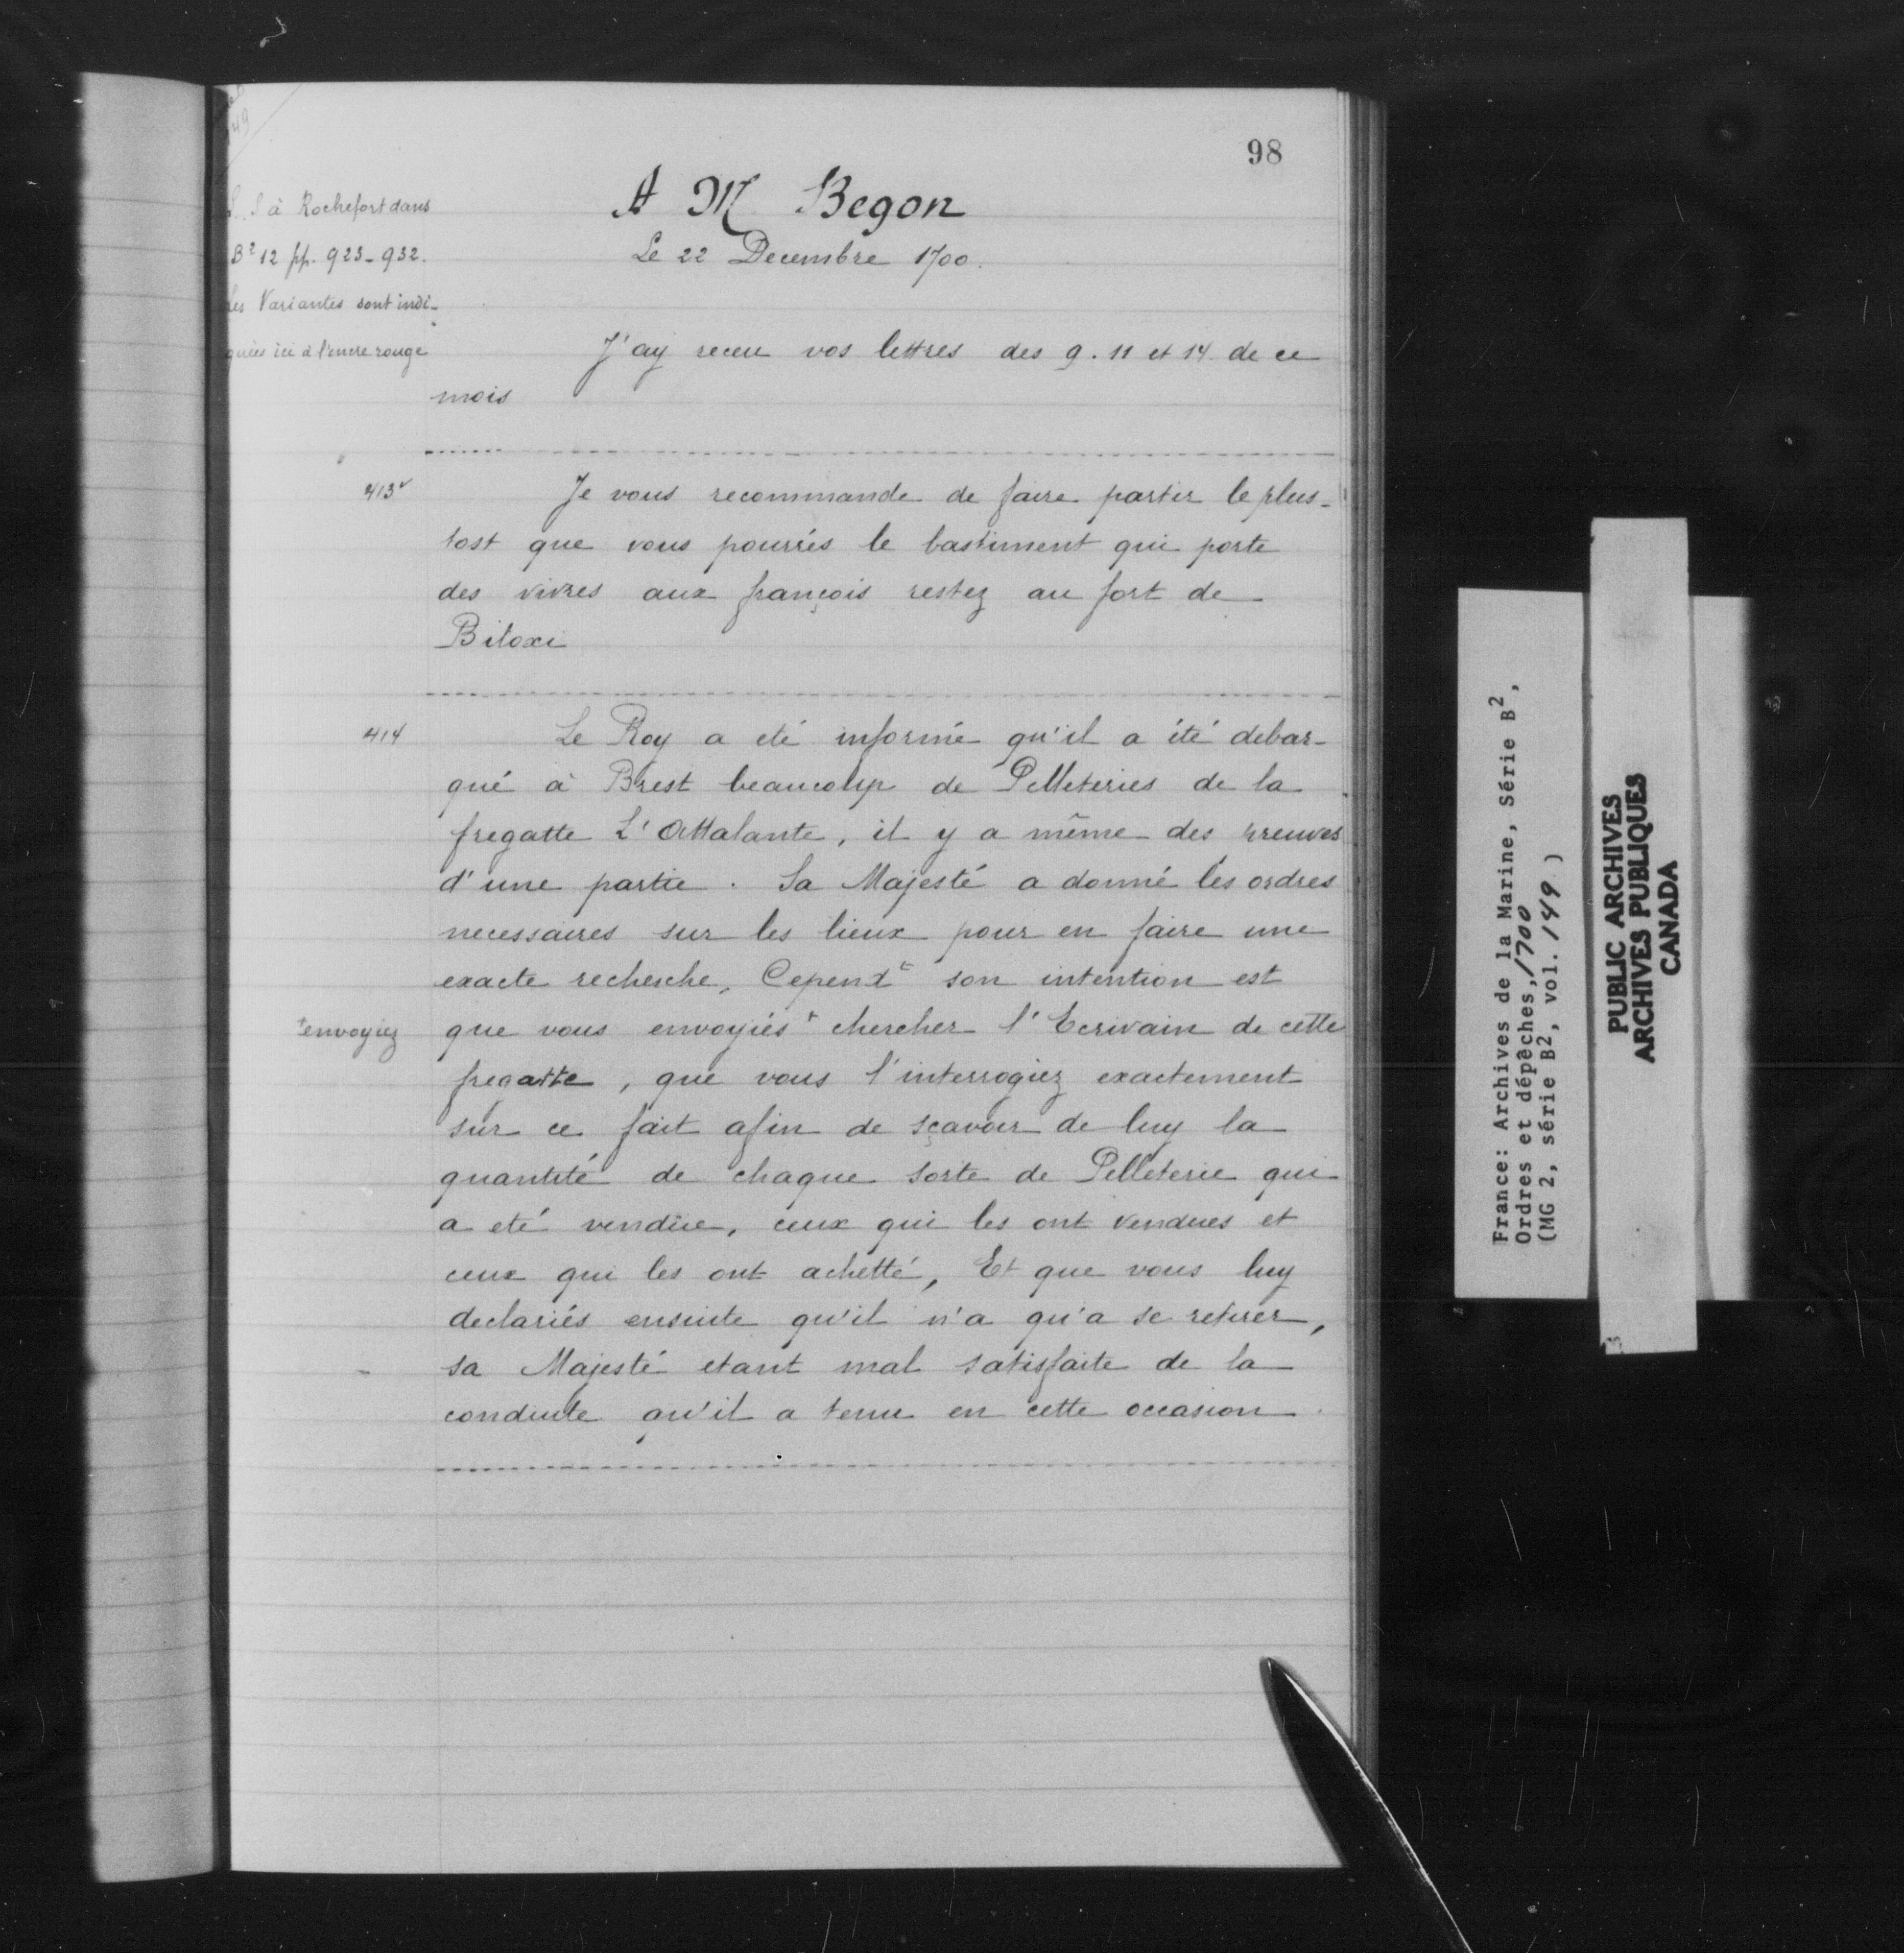 98
49
L. S à Rochefort dans
B² 12 pp. 923-932.
Les Variantes sont indi-
quées ici à l'encre rouge
A M Begon
Le 22 Decembre 1700.
J'ay receu vos lettres des 9. 11 et 14 de ce
mois
413v
Je vous recommande de faire partir le plus-
tost que vous pourrés le bastiment qui porte
des vivres aux françois restez au fort de
Biloxi
414
Le Roy a eté informé qu'il a été debar-
qué à Brest beaucoup de Pelleteries de la
fregatte L'Attalante, il y a même des preuves
d'une partie. Sa Majesté a donné les ordres
necessaires sur les lieux pour en faire une
exacte recherche, Cependt son intention est
+envoyiez
que vous envoyiés+ chercher l'Ecrivain de cette
fregatte, que vous l'interrogiez exactement
sur ce fait afin de sçavoir de luy la
quantité de chaque sorte de Pelleterie qui
a eté vendüe, ceux qui les ont vendues et
ceux qui les ont achetté, Et que vous luy
declariés ensuite qu'il n'a qu'a se retirer,
sa Majesté etant mal satisfaite de la
conduite qu'il a tenu en cette occasion.
France: Archives de la Marine, Série B²,
Ordres et dépêches, 1700
(MG 2, série B², vol. 149 )
PUBLIC ARCHIVES
ARCHIVES PUBLIQUES
CANADA